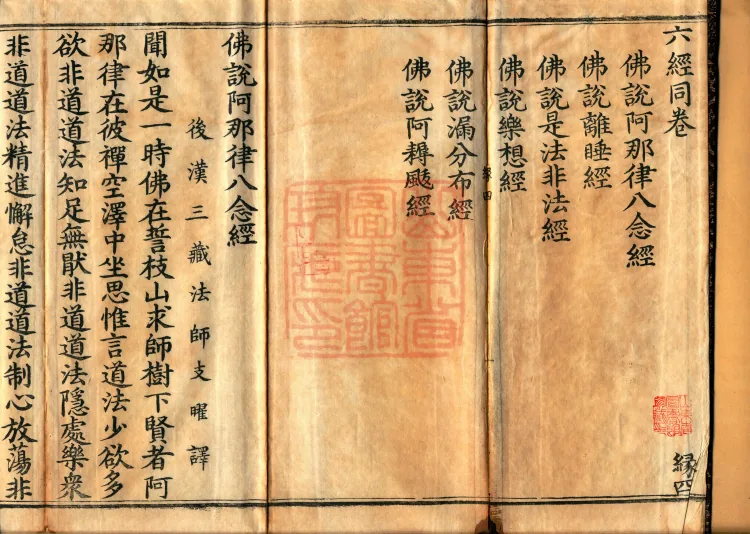 六經同卷
緣四
佛說阿那律八念經
佛說離睡經
佛說是法非法經
佛說樂想經
緣四
佛說漏分布經
佛說阿耨颰經
佛說阿那律八念經
後漢三藏法師支曜譯
聞如是一時佛在誓枝山求師樹下賢者阿
那律在彼禪空澤中坐思惟言道法少欲多
欲非道道法知足無猒非道道法隱處樂衆
非道道法精進懈怠非道道法制心放蕩非